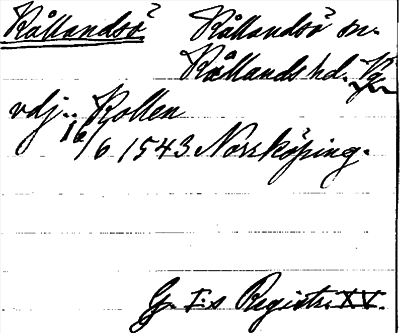 Kållandsö Kållandsö sn.
Kållands hd. Vg.
vdj.. Kollen
16/6 1543 Norrköping.
G. I:s Registr. XV.